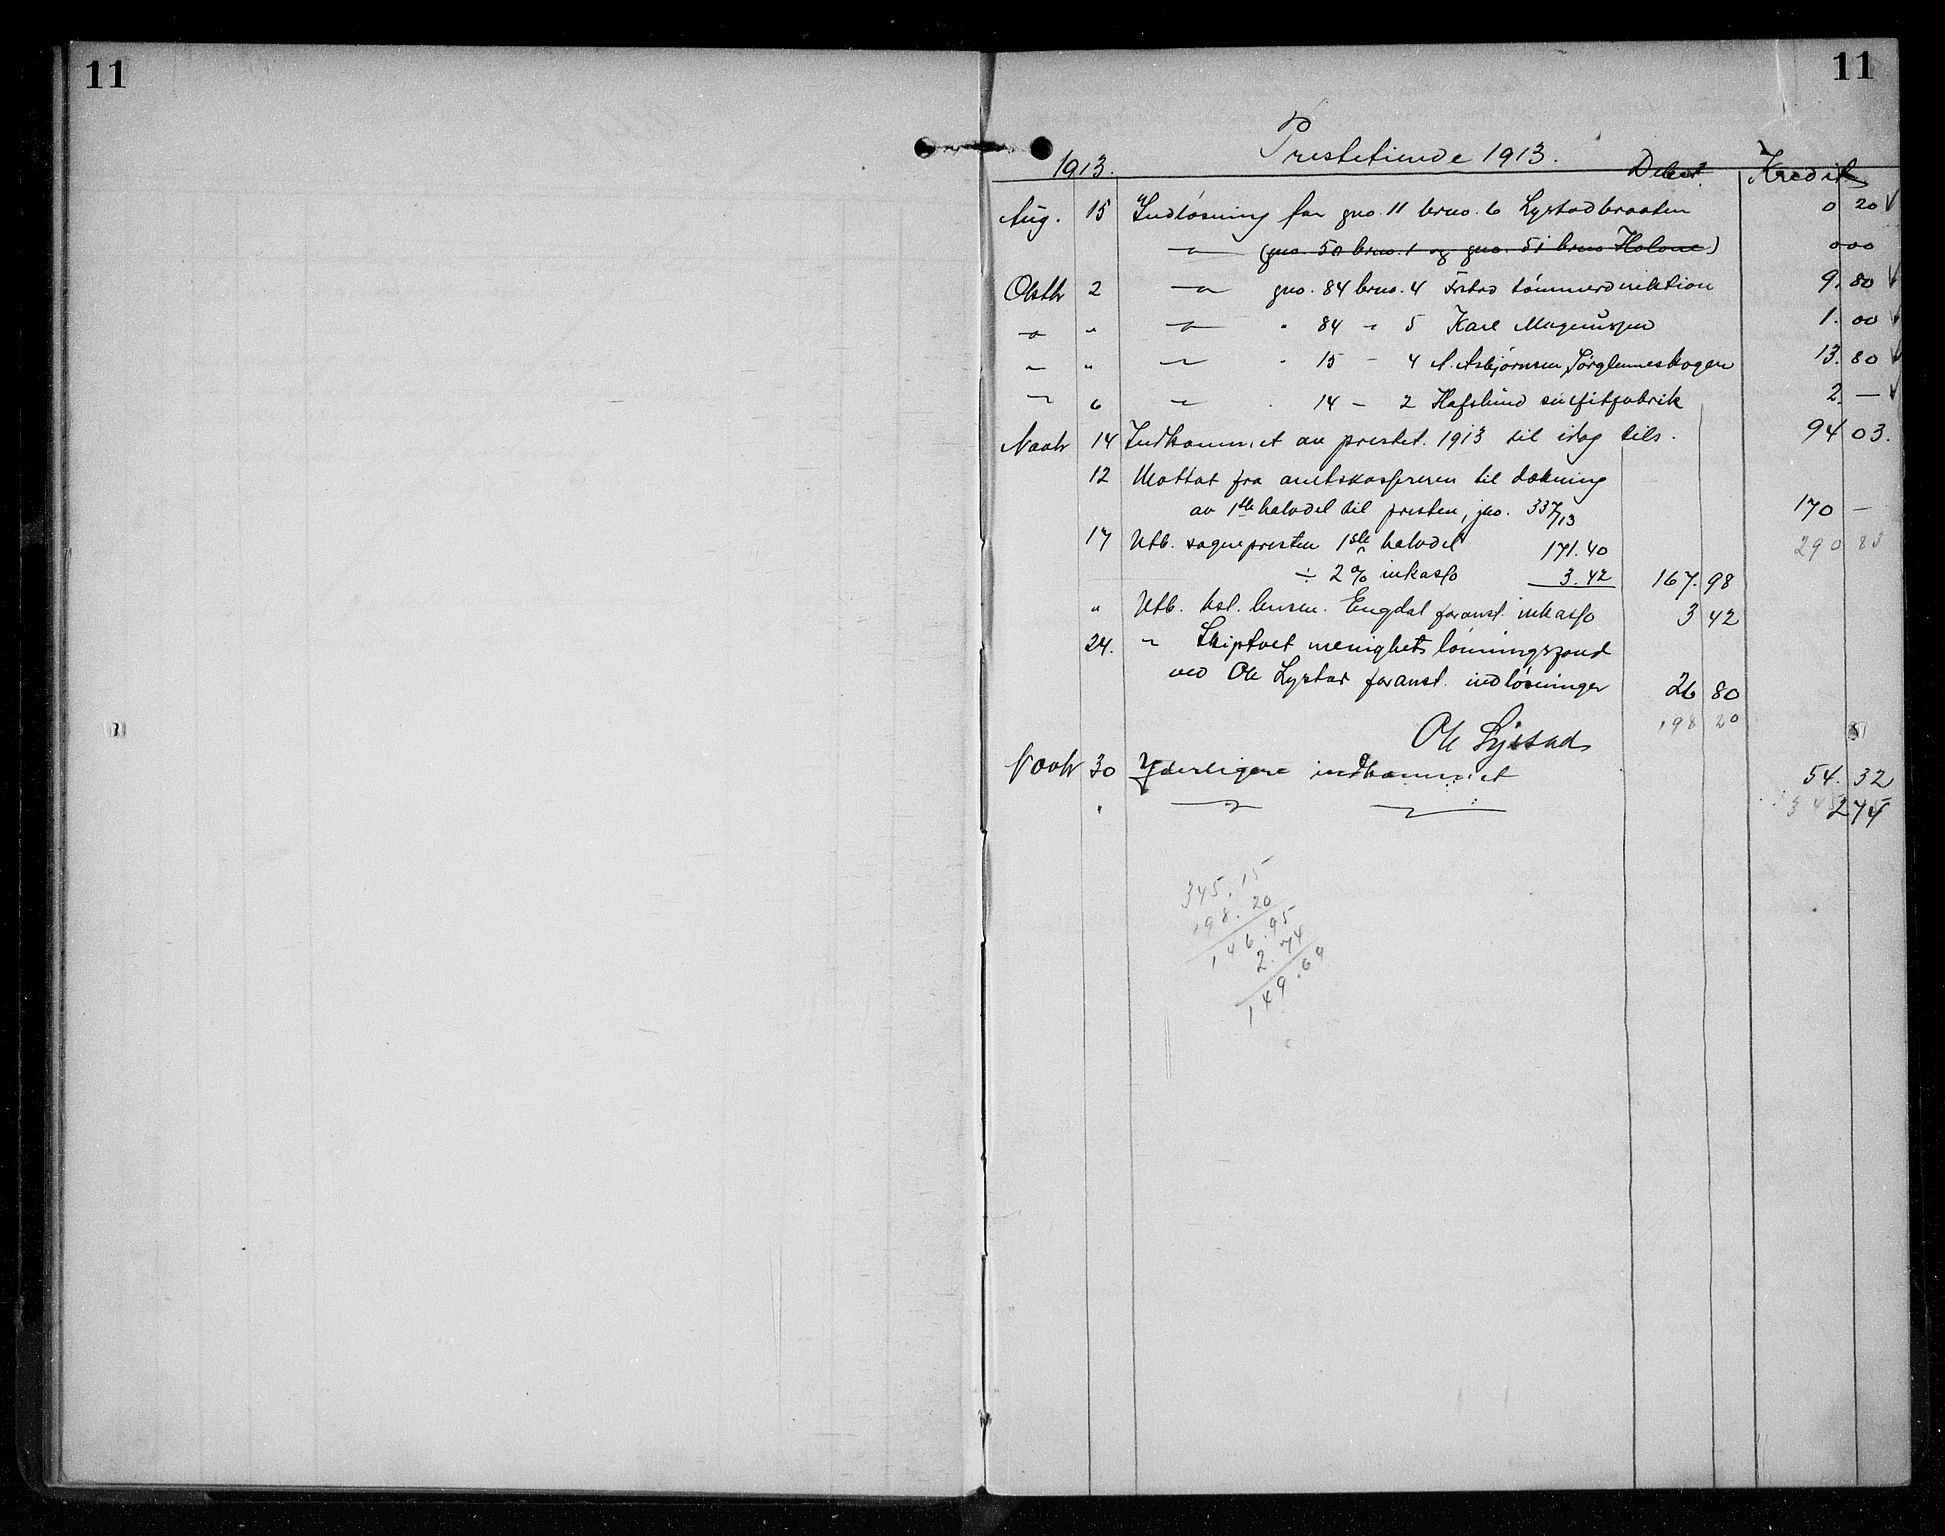 11
11
Prestetiende 1913.
1913. Debet. Kredit
Aug. 15 Indløsning for gno. 11 brno. 6 Lystadbraaten 0 20
—"— (gno. 50 brno. 1 og gno. 51 brno Holone) 000
Oktbr 2 —"— gno. 84 brno. 4 tømmerdirektion 9. 80
—"— " —"— " 84 " 5 Karl Magnussen 1. 00
—"— " —"— " 15 — 4 A. Asbjørnsen, Sørglenneskogen 13. 80
—"— 6 —"— " 14 — 2 Hafslund sulfitfabrik 2. —
Novbr 14 Indkommet av prestet. 1913 til idag tils. 94 03.
12 Mottat fra amtskassereren til dækning
av 1ste halvdel til presten, jno. 337/13 170 —
17 Utb. sognepresten 1ste halvdel 171.40 290 83
÷ 2% inkasso 3.42 167. 98
" Utb. lensm. Engdal foranst. inkasso 3 42
24. " Skiptvet menighets lønningsfond
ved Ole Lystad foranst. indløsninger 26 80
198 20
Ole Lystad
Novbr 30 Yderligere indkommet 54. 32
" —"— —"— 2 74
345.15
198.20
146.95
2.74
149.69